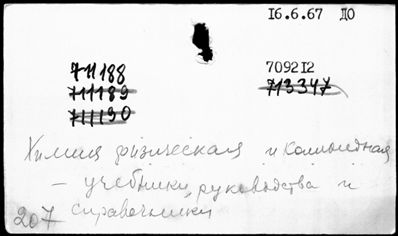 16.6.67 ДО
711188
709212
711189
713347
711190
Химия физическая и коллоидная
– учебники, руководства и
справочники
207